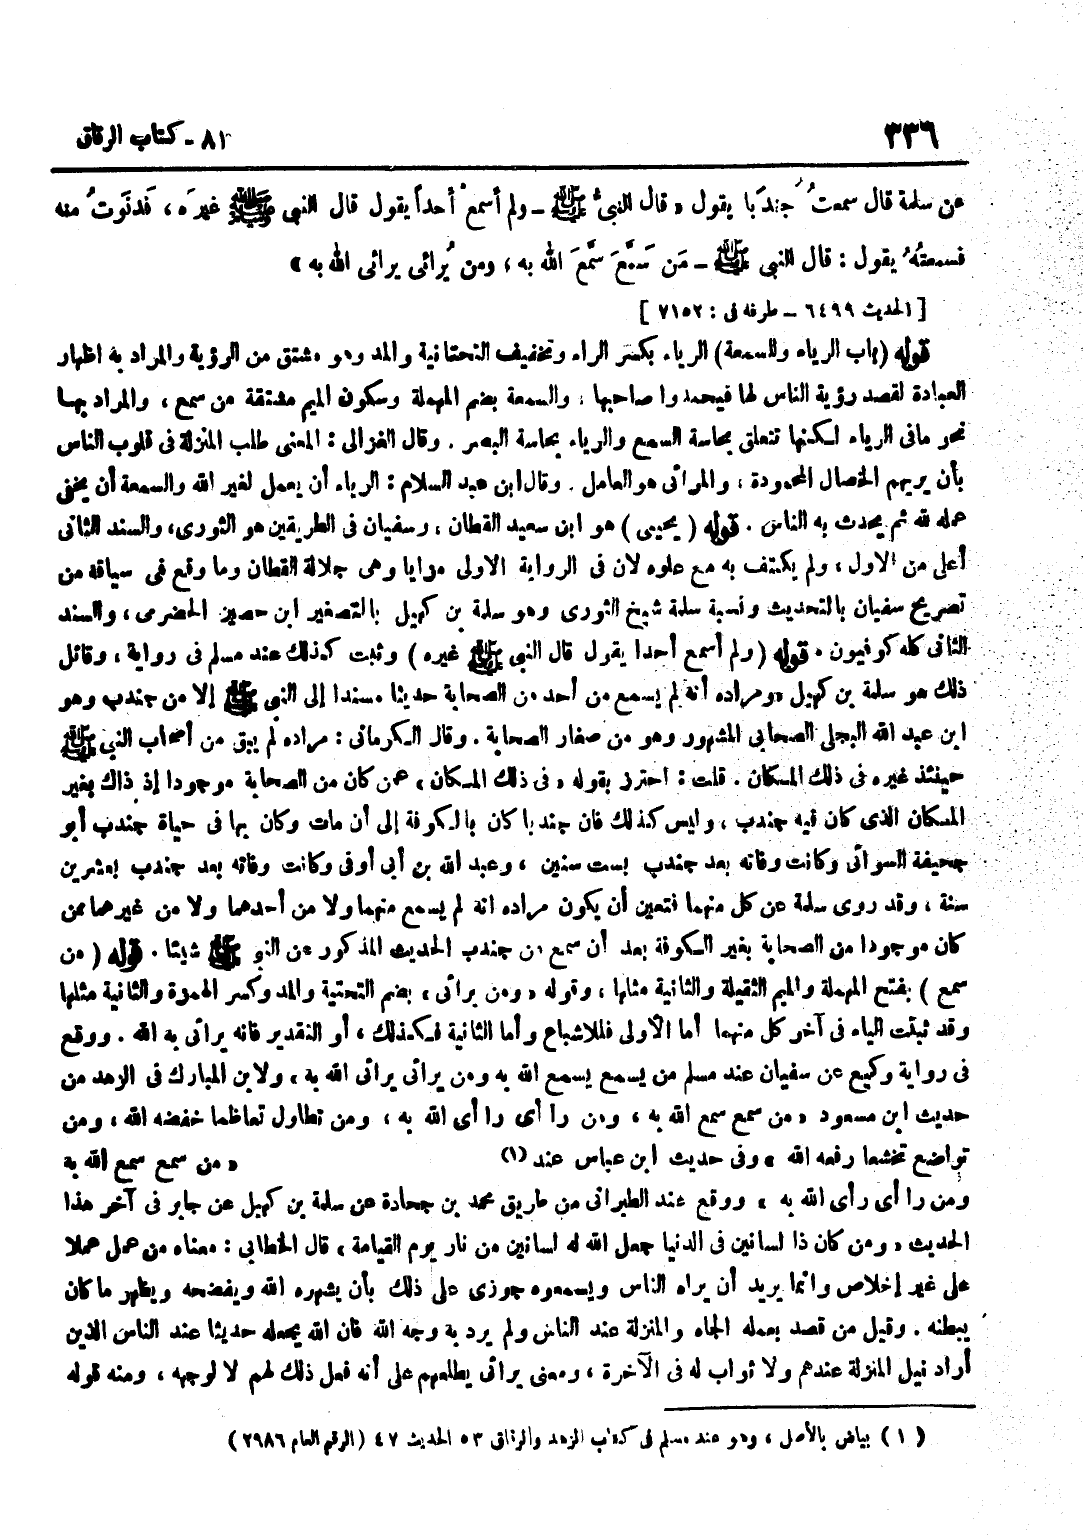 ٣٣٦
٨١ - كتاب الرقاق
عن سلمة قال سمعتُ جندَبا يقول « قال النبيُّ ﷺ - ولم أسمعْ أحداً يقول قال النبي ﷺ غيرَه ، فَدنَوتُ منه
فسمعتُهُ يقول : قال النبي ﷺ - مَن سَمَّعَ سَمَّعَ الله به ، ومن يُرائى يرائى الله به »
[ الحديث ٦٤٩٩ - طرفه فى : ٧١٥٢ ]
قوله ( باب الرياء والسمعة ) الرياء بكسر الراء وتخفيف التحتانية والمد وهو مشتق من الرؤية والمراد به اظهار
العبادة لقصد رؤية الناس لها فيحمدوا صاحبها ، والسمعة بضم المهملة وسكون الميم مشتقة من سمع ، والمراد بهـا
نحو مافى الرياء لكنها تتعلق بحاسة السمع والرياء بحاسة البصر . وقال الغزالى : المعنى طلب المنزلة فى قلوب الناس
بأن يريهم الخصال المحمودة ، والمرائى هو العامل . وقال ابن عبد السلام : الرياء أن يعمل لغير الله والسمعة أن يخفى
عمله لله ثم يحدث به الناس . قوله ( يحيى ) هو ابن سعيد القطان ، وسفيان فى الطريقين هو الثورى ، والسند الثانى
أعلى من الاول ، ولم يكتف به مع علوه لان فى الرواية الاولى مزايا وهى جلالة القطان وما وقع فى سياقه من
تصريح سفيان بالتحديث ونسبة سلمة شيخ الثورى وهو سلمة بن كهيل بالتصغير ابن حصين الحضرمى ، والسند
الثانى كله كوفيون . قوله ( ولم أسمع أحدا يقول قال النبي ﷺ غيره ) وثبت كذلك عند مسلم فى رواية ، وقائل
ذلك هو سلمة بن كهيل ومراده أنه لم يسمع من أحد من الصحابة حديثا مسندا إلى النبي ﷺ إلا من جندب وهو
ابن عبد الله البجلى الصحابى المشهور وهو من صغار الصحابة . وقال الكرمانى : مراده لم يبق من أصحاب النبي ﷺ
حينئذ غيره فى ذلك المكان . قلت : احترز بقوله « فى ذلك المكان ، عمن كان من الصحابة موجودا إذ ذاك بغير
المكان الذى كان فيه جندب ، وليس كذلك فان جندبا كان بالكوفة إلى أن مات وكان بها فى حياة جندب أبو
جحيفة السوائى وكانت وفاته بعد جندب بست سنين ، وعبد الله بن أبى أوفى وكانت وفاته بعد جندب بعشرين
سنة ، وقد روى سلمة عن كل منهما فتعين أن يكون مراده انه لم يسمع منهما ولا من أحدهما ولا من غيرهما ممن
كان موجودا من الصحابة بغير الكوفة بعد أن سمع من جندب الحديث المذكور عن النبي ﷺ شيئا . قوله ( من
سمع ) بفتح المهملة والميم الثقيلة والثانية مثلها ، وقوله « ومن يرائى ، بضم التحتية والمد وكسر الهمزة والثانية مثلها
وقد ثبتت الياء فى آخر كل منهما أما الأولى فللاشباع وأما الثانية فكذلك ، أو التقدير فانه يرائى به الله . ووقع
فى رواية وكيع عن سفيان عند مسلم من يسمع يسمع الله به ومن يرائى يرائى الله به ، ولابن المبارك فى الزهد من
حديث ابن مسعود « من سمع سمع الله به ، ومن را أى را أى الله به ، ومن تطاول تعاظما خفضه الله ، ومن
تواضع تخشعا رفعه الله » وفى حديث ابن عباس عند (١) « من سمع سمع الله به
ومن را أى رأى الله به » ووقع عند الطبرانى من طريق محمد بن جحادة عن سلمة بن كهيل عن جابر فى آخر هذا
الحديث « ومن كان ذا لسانين فى الدنيا جعل الله له لسانين من نار يوم القيامة ، قال الخطابى : معناه من عمل عملا
على غير إخلاص وانما يريد أن يراه الناس ويسمعوه جوزى على ذلك بأن يشهره الله ويفضحه ويظهر ما كان
يبطنه . وقيل من قصد بعمله الجاه والمنزلة عند الناس ولم يرد به وجه الله فان الله يجعله حديثا عند الناس الذين
أراد نيل المنزلة عندهم ولا ثواب له فى الآخرة ، ومعنى يرائى يطلعهم على أنه فعل ذلك لهم لا لوجهه ، ومنه قوله
( ١ ) بياض بالأصل ، وهو عند مسلم فى كتاب الزهد والرقاق ٥٣ الحديث ٤٧ ( الرقم العام ٢٩٨٦ )